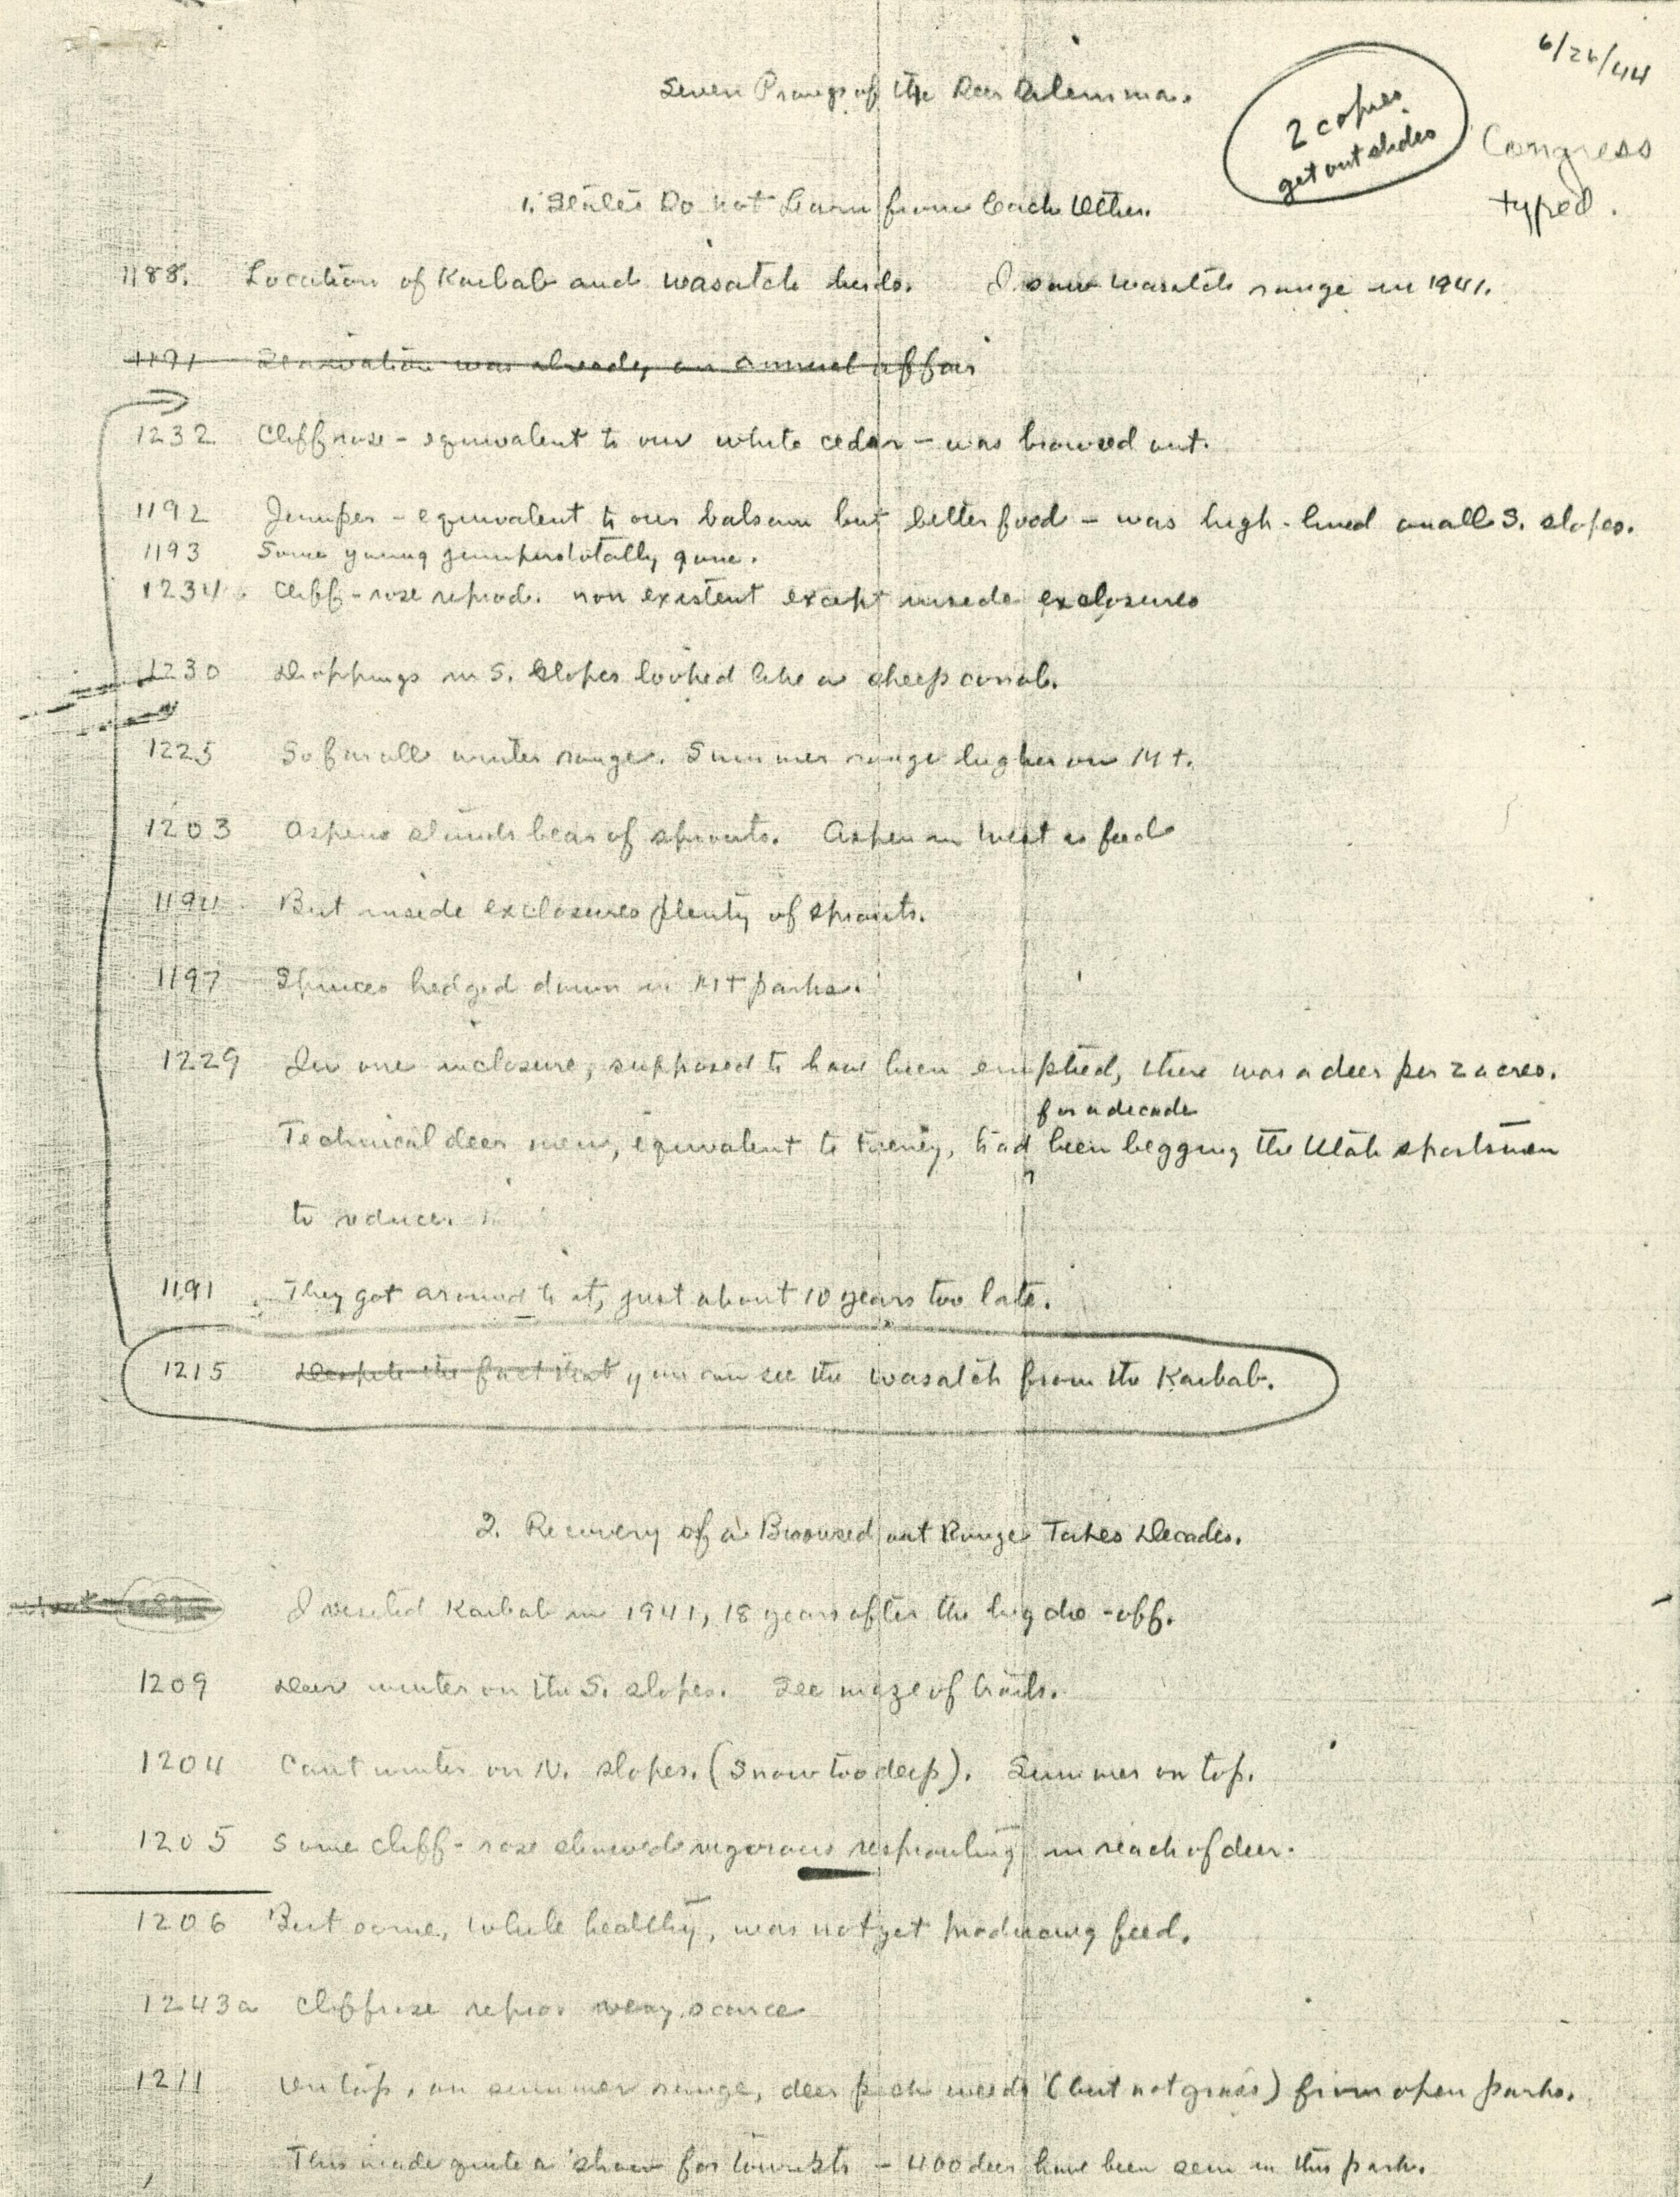 6/26/44
Seven Prongs of the Deer Dilemma.
2 copies
get out slides
Congress
typed.
1. States Do not Learn from Each Other.
1188. Location of Kaibab and Wasatch herds. I saw Wasatch range in 1941.
1191 Starvation was already an annual affair
1232 Cliffrose - equivalent to our white cedar - was browsed out.
1192 Juniper - equivalent to our balsam but better food - was high-lined on all S. slopes.
1193 Some young junipers totally gone.
1234. Cliff-rose reprod. non existent except inside exclosures
1230 Droppings on S. slopes looked like a sheep corral.
1225 So far all winter range. Summer range higher on Mt.
1203 Aspens stands bear of sprouts. Aspen in West is feed
1194 But inside exclosures plenty of sprouts.
1197 Spruces hedged down in Mt parks.
1229 In one inclosure, supposed to have been emptied, there was a deer per 2 acres.
for a decade
Technical deer men, equivalent to Feeney, had been begging the Utah sportsmen
to reduce.
1191 They got around to it, just about 10 years too late.
1215 Despite the fact that you can see the Wasatch from the Kaibab.
2. Recovery of a Browsed out Range Takes Decades.
I visited Kaibab in 1941, 18 years after the big die-off.
1209 Deer winter on the S. slopes. See maze of trails.
1204 Cant winter on N. slopes. (Snow too deep). Summer on top.
1205 Some cliff-rose showed vigorous resprouting in reach of deer.
1206 But some, while healthy, was not yet producing feed.
1243a Cliffrose repro. very scarce
1211 On top, on summer range, deer pick weeds (but not grass) from open parks.
This made quite a show for tourists - 400 deer have been seen in this park.